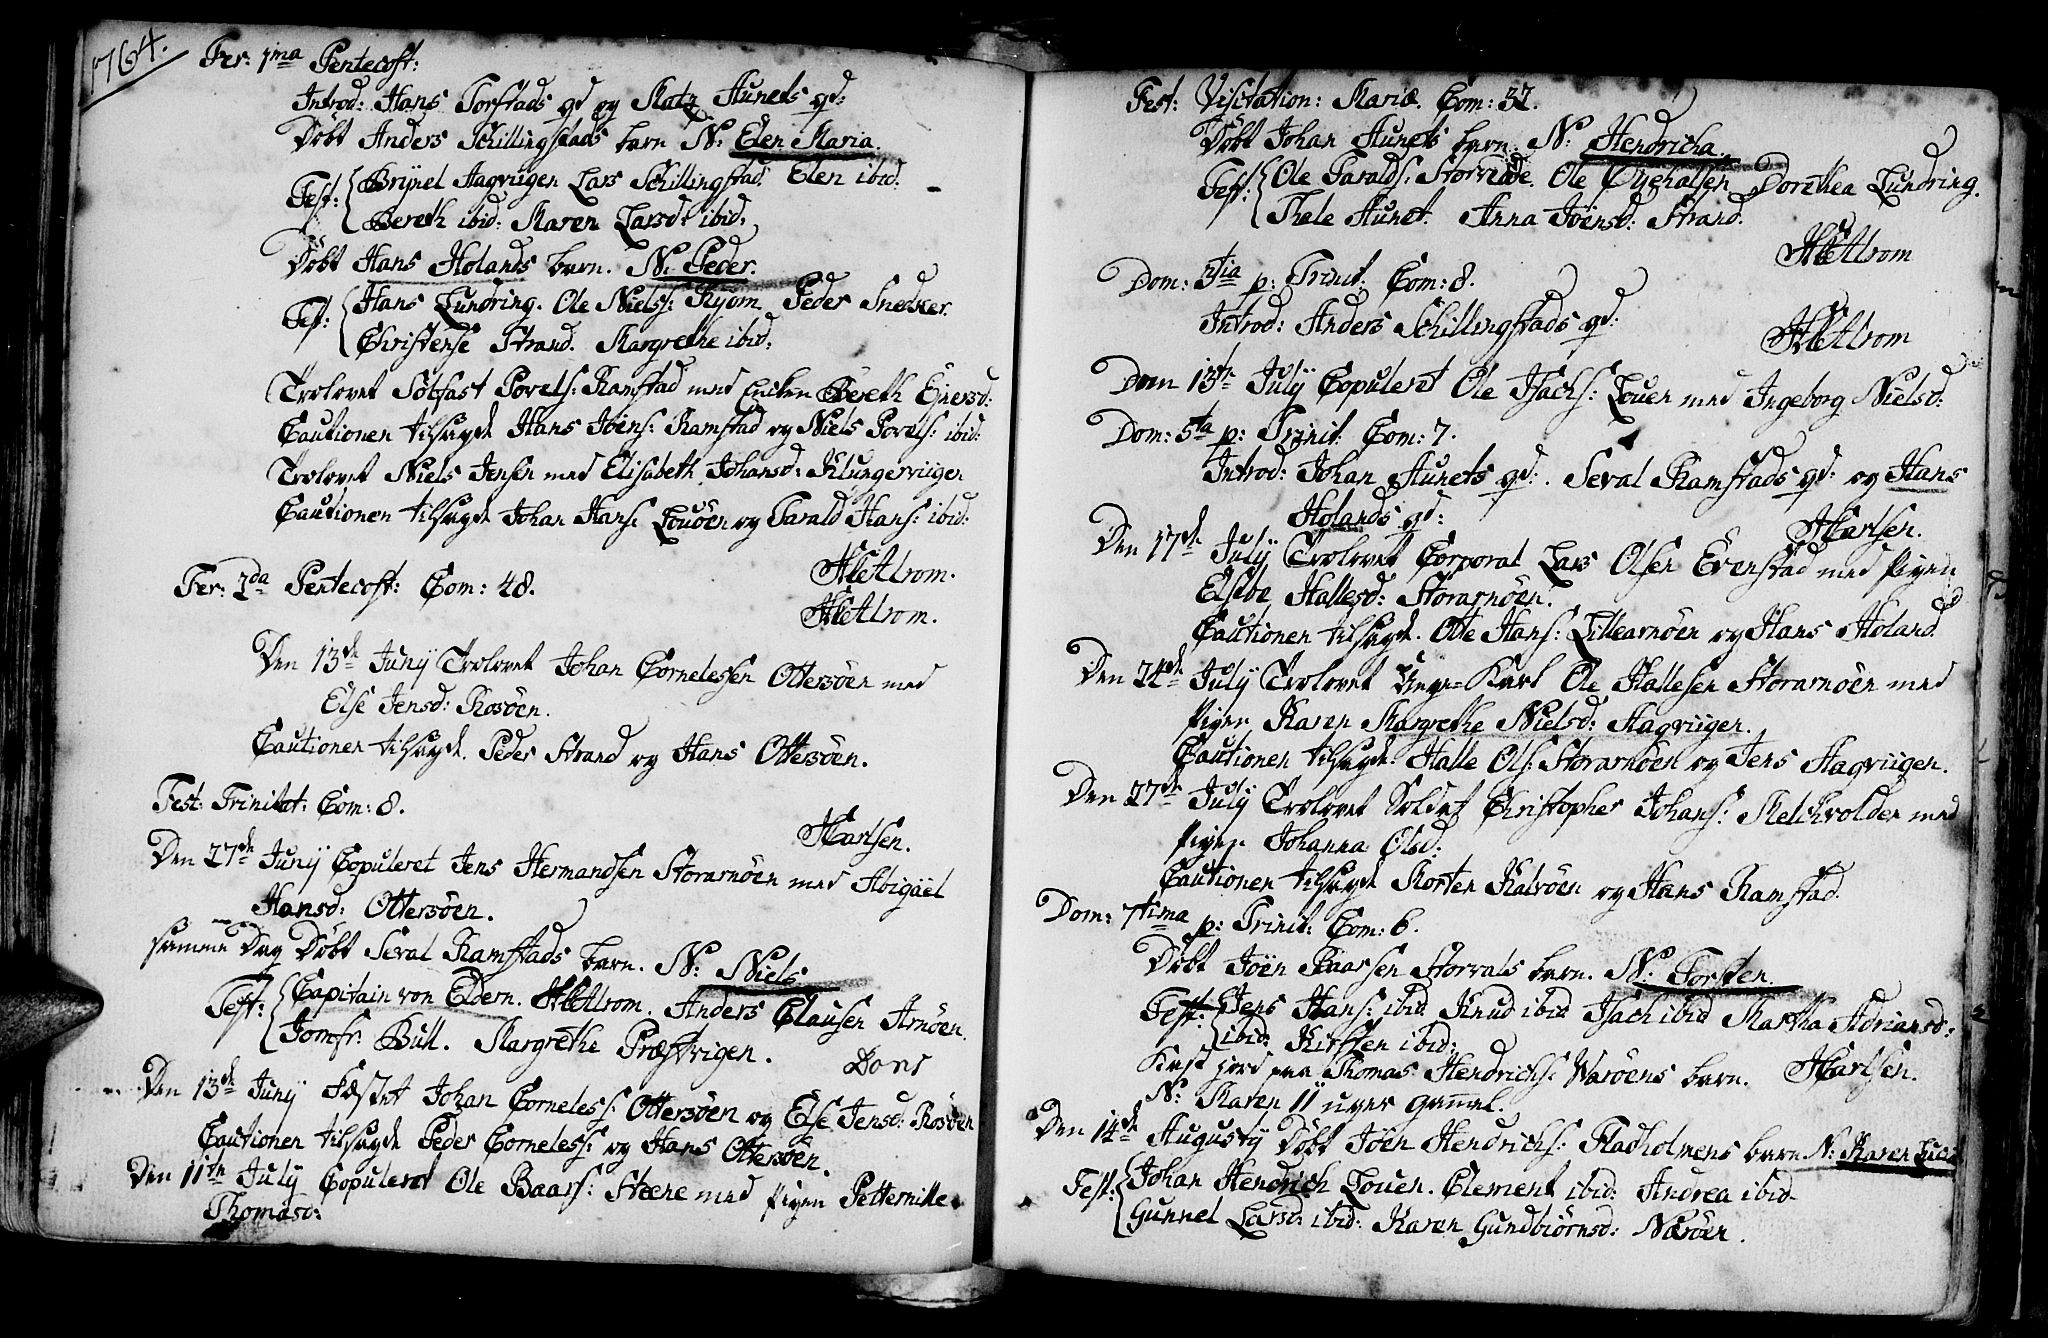 1764.
Fer: 1ma Pentecost:
Introd: Hans Torstads qd og Matz Aunets qd:
Döbt Anders Schillingstads barn N: Elen Maria.
Test: Brynel Hagviigen Lars Schillingstad. Elen ibid.
Bereth ibid: Maren Larsdr ibid.
Döbt Hans Holands barn. N: Peder.
Test: Hans Lundring. Ole Niels: Ryom Peder Snedker.
Christense Strand. Margrethe ibid.
Trolovet Solfast Povels: Ramstad med Enken Bereth Ejnersd:
Cautionen tilsagde Hans Jöens: Ramstad og Niels Povels: ibid:
Trolovet Niels Jensen med Elisabeth Johansd: Klungerviigen
Cautionen tilsagde Johan Hans: Louöen og Harald Hans: ibid:
Fer: 2da Pentecost: Com: 48.
Den 13de Junÿ Trolovet Johan Cornelessen Ottersöen med
Else Jensd: Rosöen.
Cautionen tilsagde. Peder Strand og Hans Ottersöen.
Fest: Trinitat: Com: 8.
HCarlsen.
Den 27de Junÿ Copuleret Jens Hermandsen Storarnöen med Abigäel
Hansd: Ottersöen.
samme Dag Döbt Seval Ramstads barn. N: Niels
Test: Capitain von Eldern. Anders Clausen Arnöen.
Jomfr: Bull. Margrethe Præstvigen. Dons
Den 13de Junÿ Fæstet Johan Corneless: Ottersöen og Else Jensd: Rosöen
Cautionen tilsagde Peder Corneless: og Hans Ottersöen.
Den 11te July Copuleret Ole Baars: Steene med Pigen Petternille
Thomasd:
Fest: Visitation: Mariæ. Com: 32.
Döbt Johan Aunets barn. N: Hendricha.
Test: Ole Haralds: Ole Öyehalsen Dorethea Lundring.
Thale Aunet. Anna Jöensd: Strand.
Dom: 3tia p: Trinit: Com: 8.
Introd: Anders Schillingstads qd:
Dom 13de July Copuleret Ole Isachs: Louen med Ingeborg Nielsd:
Dom: 5ta p: Trinit: Com: 7.
Introd: Johan Aunets qd:. Seval Ramstads qd: og Hans
Holands qd:
HCarlsen.
Den 17de July Trolovet Corporal Lars Olsen Evenstad med Pigen
Elsebe Hallesd: Storarnöen.
Cautionen tilsagde. Otte Hans: Lillearnöen og Hans Holand
Den 24de July Trolovet Unge-Karl Ole Hallesen Storarnöen med
Pigen Karen Margrethe Nielsd: Hagviigen.
Cautionen tilsagde Halle Ols: Storarnöen og Jens Hagviigen.
Den 27de July Trolovet Soldat Christopher Johans: Melchvolden med
Pigen Johanna Olsd:
Cautionen tilsagde Morten Kalvöen og Hans Ramstad.
Dom: 7tima p: Trinit: Com: 6.
Döbt Jöen Baarsen Storvals barn. N: Torsten.
Test: Jens Hans: ibid Knud ibid Isach ibid Martha Adriansd:
ibid: Kirsten ibid:
Kast jord paa Thomas Hendrichs: Waröens barn. HCarlsen.
N: Maren 11 uger gamel.
Den 14de Augustÿ Döbt Jöen Hendrichs: Fladholmens barn N: Karen
Test: Johan Hendrich Louen. Clement ibid: Andrea ibid
Gunnel Larsd: ibid: Karen Gundbiörnsd: Næröen.